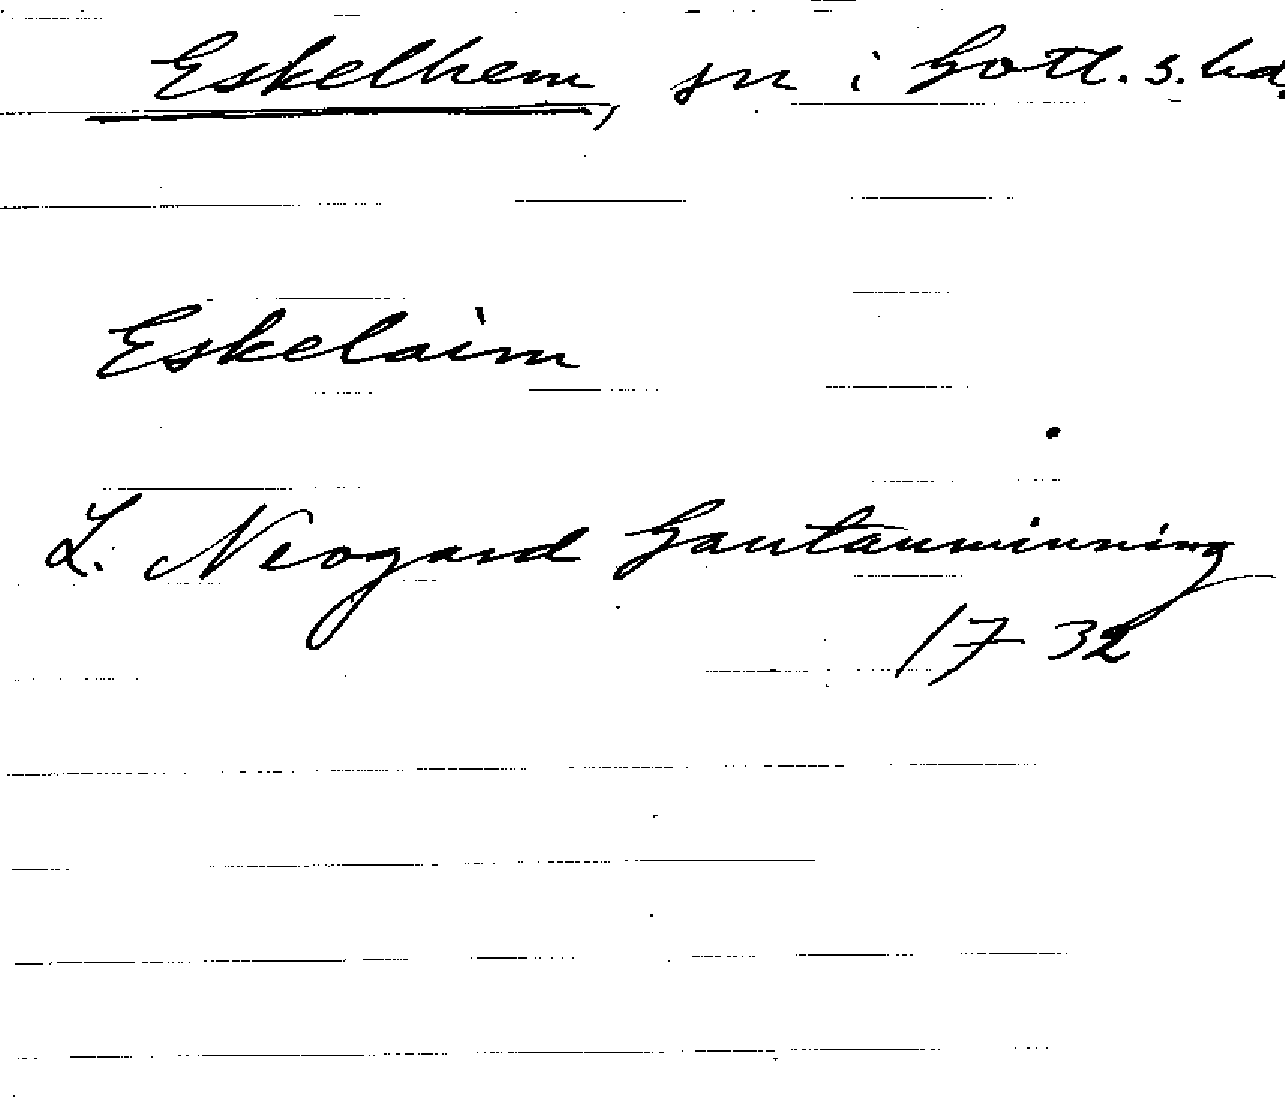 Eskelhem, sn i Gotl. s. hd.
Eskelaim
L. Neogard Gautauminning
1732